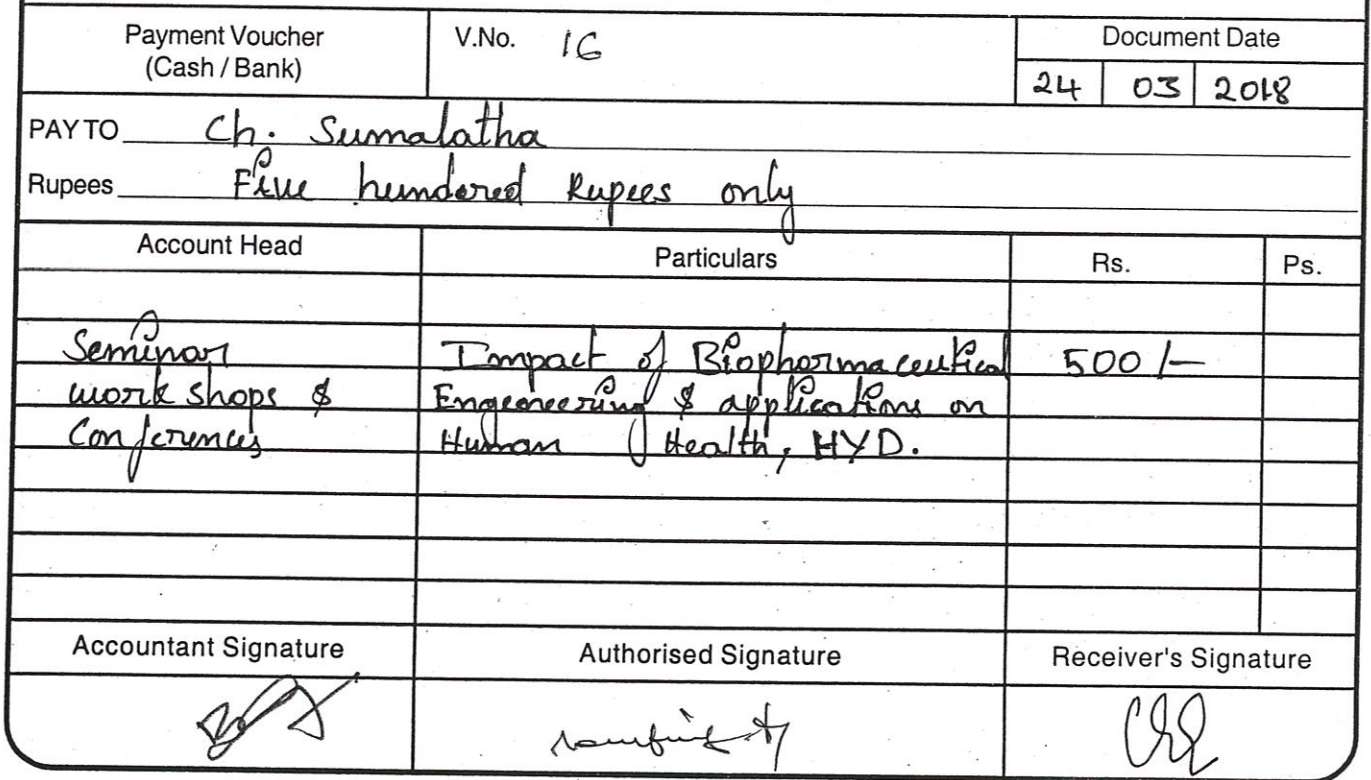 Payment Voucher
(Cash / Bank)
V.No. 16
Document Date
24 03 2018
PAY TO Ch. Sumalatha
Rupees Five hundered Rupees only
Account Head Particulars Rs. Ps.
Seminar Impact of Biophormaceutical 500/-
work shops & Engeneering & applications on
Conferences Human Health, HYD.
Accountant Signature Authorised Signature Receiver's Signature